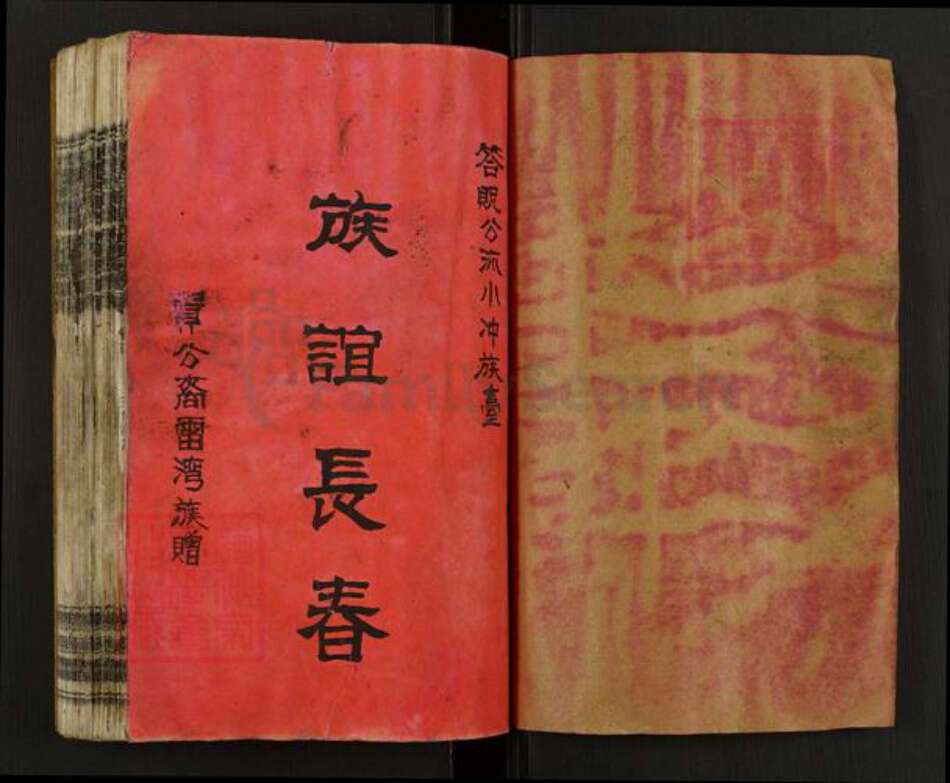 答贶公派小冲族臺
族誼長春
公裔雷湾族贈
FamilySearch